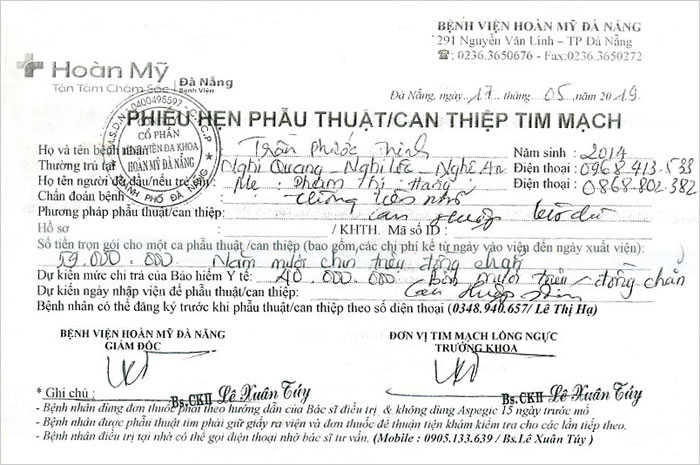 BỆNH VIỆN HOÀN MỸ ĐÀ NẴNG
291 Nguyễn Văn Linh – TP Đà Nẵng
☎: 0236.3650676 - Fax:0236.3650272
Hoàn Mỹ Đà Nẵng
Tận Tâm Chăm Sóc Bệnh Viện
Đà Nẵng, ngày 17 tháng 05 năm 2019
PHIẾU HẸN PHẪU THUẬT/CAN THIỆP TIM MẠCH
M.S.D.N: 0400495597 - C.T.C.P
CỔ PHẦN
BỆNH VIỆN ĐA KHOA
HOÀN MỸ ĐÀ NẴNG
THÀNH PHỐ ĐÀ NẴNG
Họ và tên bệnh nhân Trần Phước Thịnh Năm sinh : 2014
Thường trú tại Nghi Quang _ Nghi Lộc _ Nghệ An Điện thoại : 0968.413.533
Họ tên người đỡ đầu/nếu trẻ em : Mẹ : Phạm Thị Hằng Điện thoại : 0868.802.382
Chẩn đoán bệnh : Thông liên nhĩ
Phương pháp phẫu thuật/can thiệp: can thiệp bít dù
Hồ sơ / KHTH. Mã số ID :
Số tiền trọn gói cho một ca phẫu thuật /can thiệp (bao gồm,các chi phí kể từ ngày vào viện đến ngày xuất viện):
59.000.000. Năm mươi chín triệu đồng chẵn
Dự kiến mức chi trả của Bảo hiểm Y tế: 40.000.000 Bốn mươi triệu đồng chẵn
Dự kiến ngày nhập viện để phẫu thuật/can thiệp: Can thiệp
Bệnh nhân có thể đăng ký trước khi phẫu thuật/can thiệp theo số điện thoại (0348.940.657/ Lê Thị Hạ)
BỆNH VIỆN HOÀN MỸ ĐÀ NẴNG
GIÁM ĐỐC
ĐƠN VỊ TIM MẠCH LỒNG NGỰC
TRƯỞNG KHOA
* Ghi chú : Bs.CKII Lê Xuân Túy Bs.CKII Lê Xuân Túy
- Bệnh nhân dùng đơn thuốc phải theo hướng dẫn của Bác sĩ điều trị & không dùng Aspegic 15 ngày trước mổ
- Bệnh nhân được phẫu thuật tim phải giữ giấy ra viện và đơn thuốc để thuận tiện khám kiểm tra cho các lần tiếp theo.
- Bệnh nhân điều trị tại nhà có thể gọi điện thoại nhờ bác sĩ tư vấn. (Mobile : 0905.133.639 / Bs.Lê Xuân Túy )